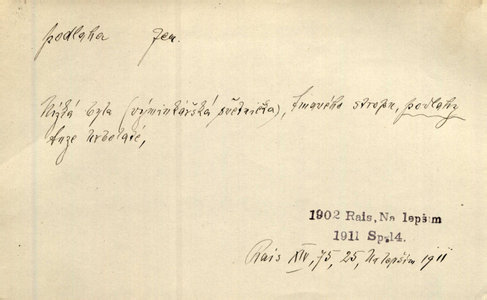 podlaha žen.
Nízká byla (výminkářská světnička), tmavého stropu, podlahy
tuze hrbolaté,
1902 Rais, Na lepším
1911 Sp. 14.
Rais XIV, 75, 25, Na lepším 1911